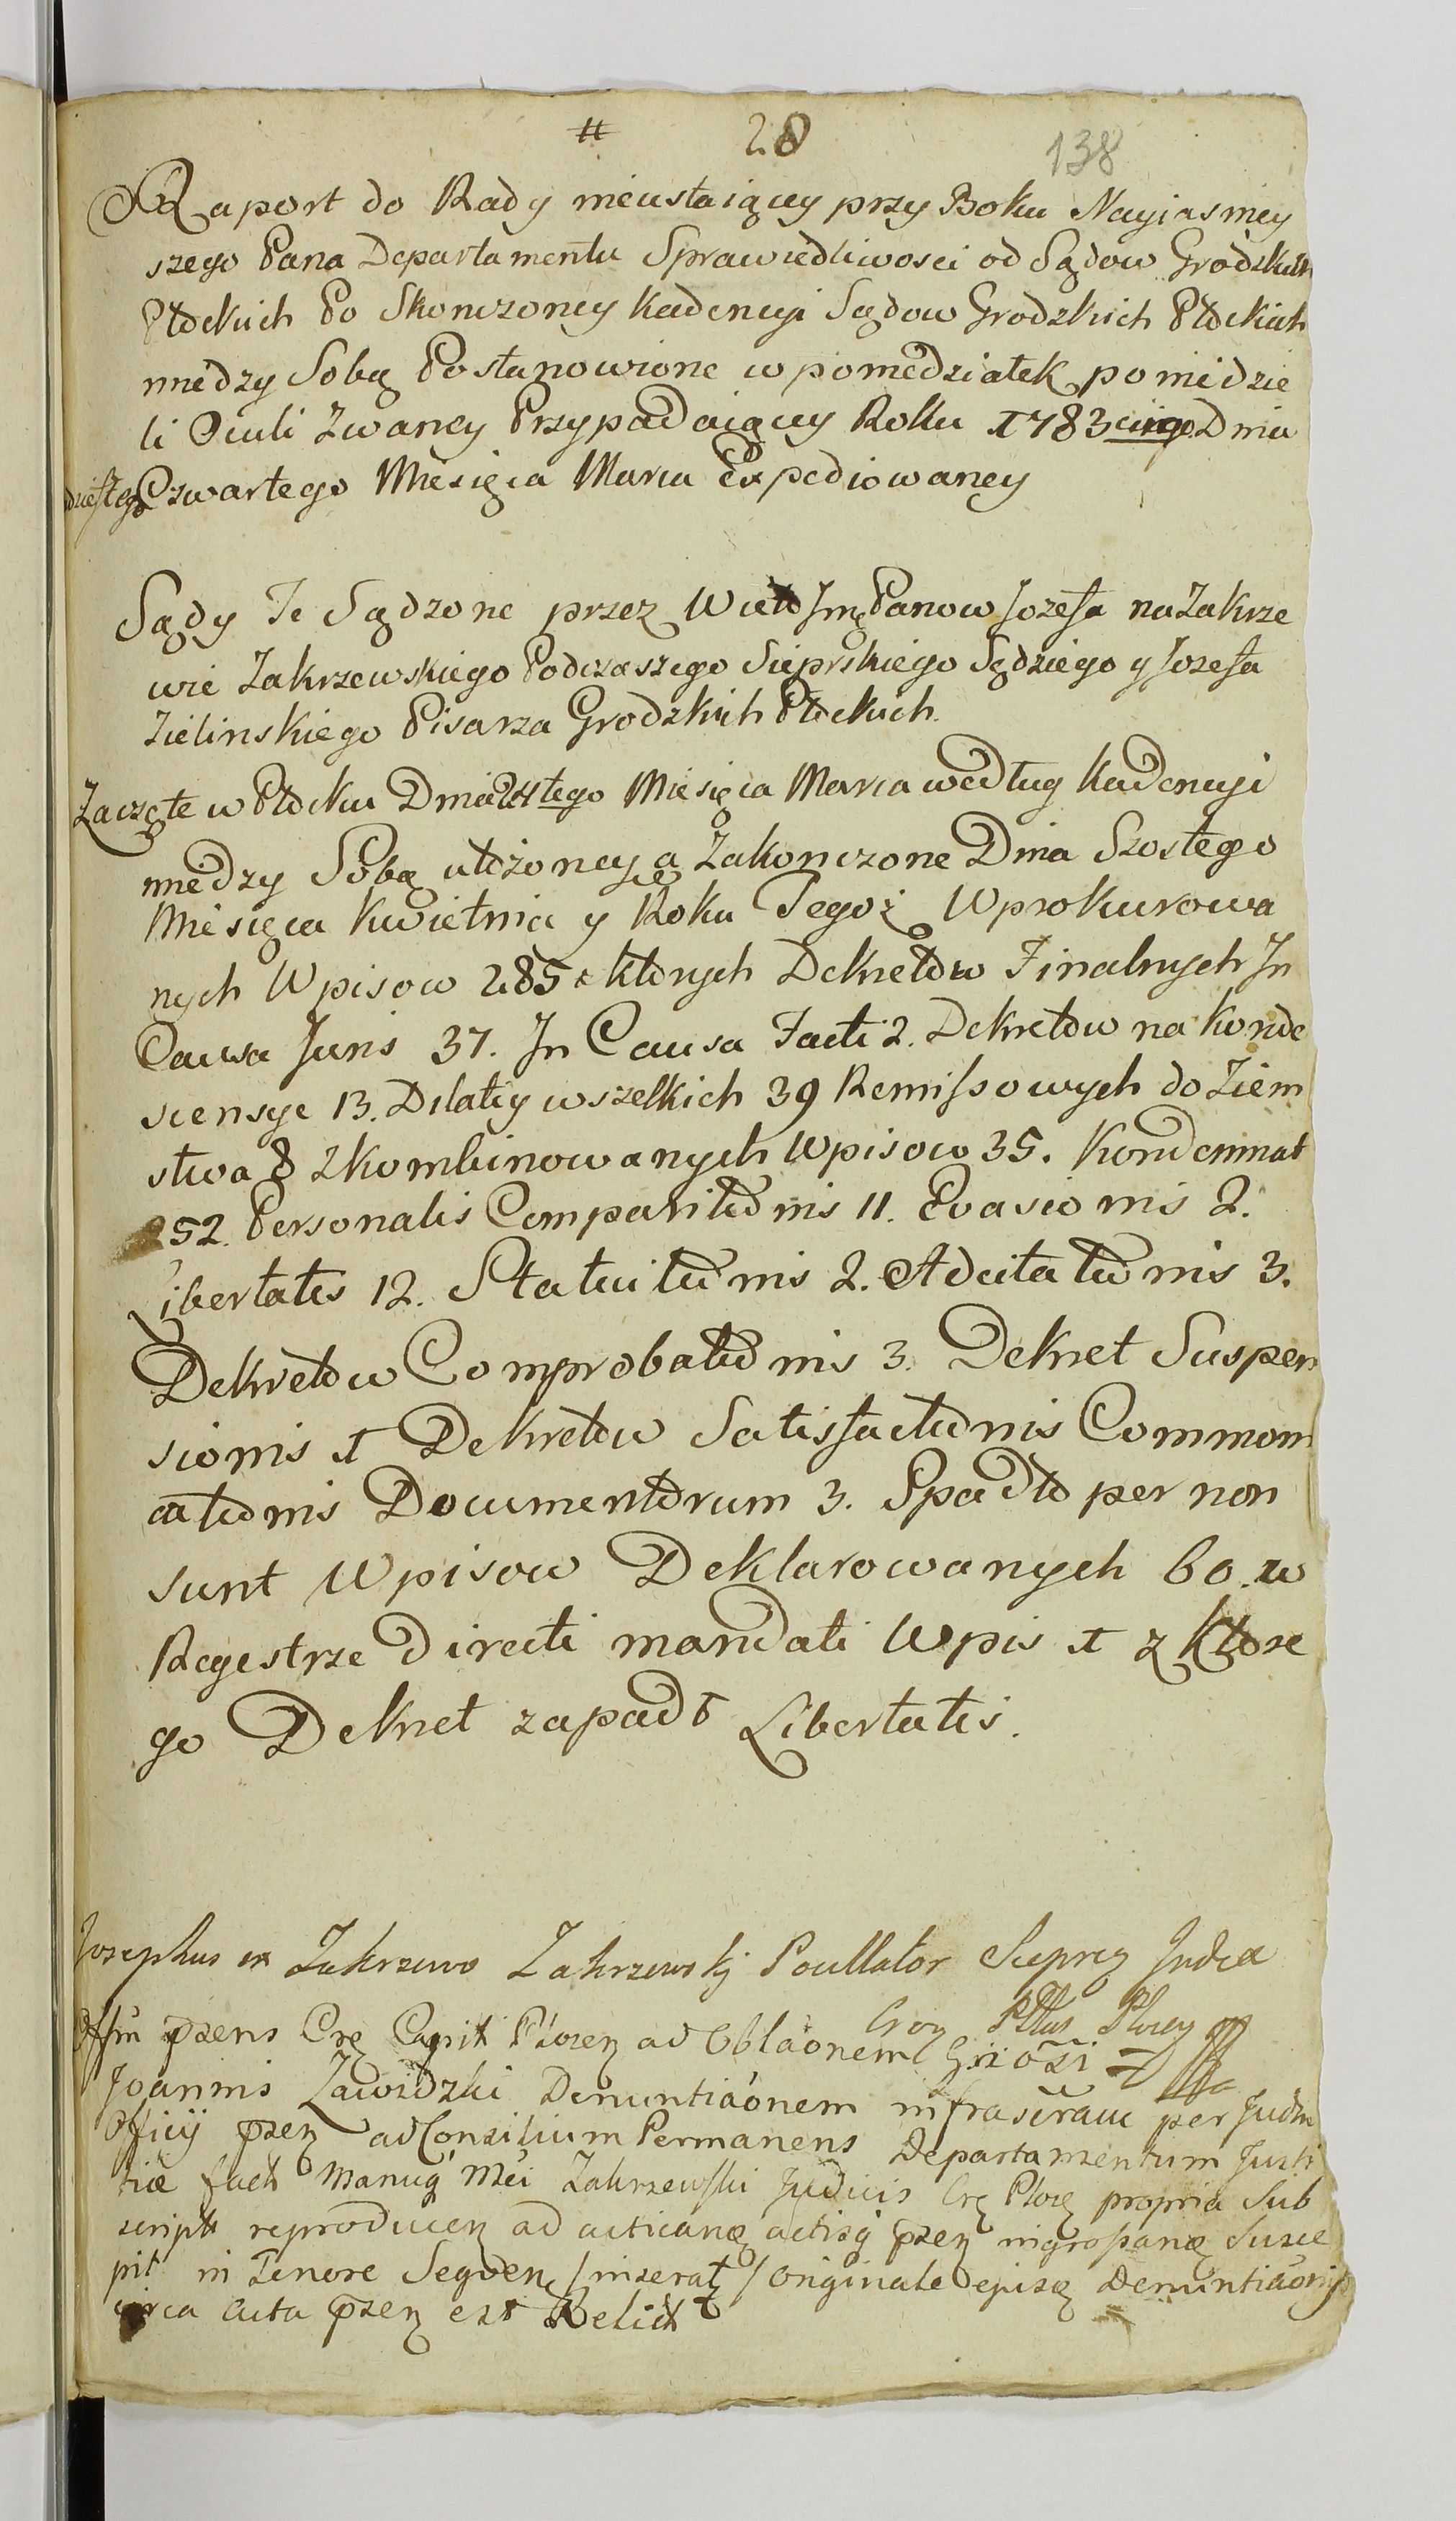 # 28 138
Raport do Rady nieustaiącey przy Boku Nayiasniey
szego Pana Departamentu Sprawiedliwosci od Sądow Grodzkich
Płockich Po Skonczoney Kadencyi Sądow Grodzkich Płockich
miedzy Sobą Postanowione w poniedziałek po niedzie
li Oculi Zwaney Przypadaiącey Roku 1783 Dnia
Czwartego Miesięca Marca Expediowaney
Sądy Te Sądzone przez Panow Jozefa na Zakrze
wie Zakrzewskiego Podczaszego Sieprskiego Sędziego y Jozefa
Zielinskiego Pisarza Grodzkich Płockich.
Zaczęte w Płocku Dnia 24tego Miesięca Marca według Kadencyi
miedzy Sobą ułożoney a Zakonczone Dnia Szostego
Miesięca Kwietnia y Roku Tegoż Wprokurowa
nych Wpisow 285 z ktorych Dekretow Finalnych In
Causa Juris 37. In Causa Facti 2. Dekretow na Konde
scensye 13. Dilacy wszelkich 39 Remissowych do Ziem
stwa 8 zkombinowanych Wpisow 35. Kondemnat
52. Personalis Comparitionis 11. Evasionis 2.
Libertatis 12. Statuitionis 2. Adcitationis 3.
Dekretow Comprobationis 3. Dekret Suspen
sionis 1 Dekretow Satisfactionis Commoni
cationis Documentorum 3. Spadło per non
sunt Wpisow Deklarowanych 60. w
Regestrze directi mandati Wpis 1 z ktore
go Dekret zapadł Libertatis.
Josephus in Zakrzewo Zakrzewskj Pocillator Sieprcz Judex
Plocz
Offm pzens Cap Plocen ad Oblaonem
Joannis Zawidzki Denuntiaonem infrascram per Judm
Officij pzen ad Consilium Permanens Departamentum Justi
tiae fact Manuq Mei Zakrzewski Judicis Plocen propria Sub
script reproducen ad acticand actisq pzen ingrossand Susce
pit in Tenore Seqven /inserat/ originale episq Denuntiaonis
circa acta pzen est Relict